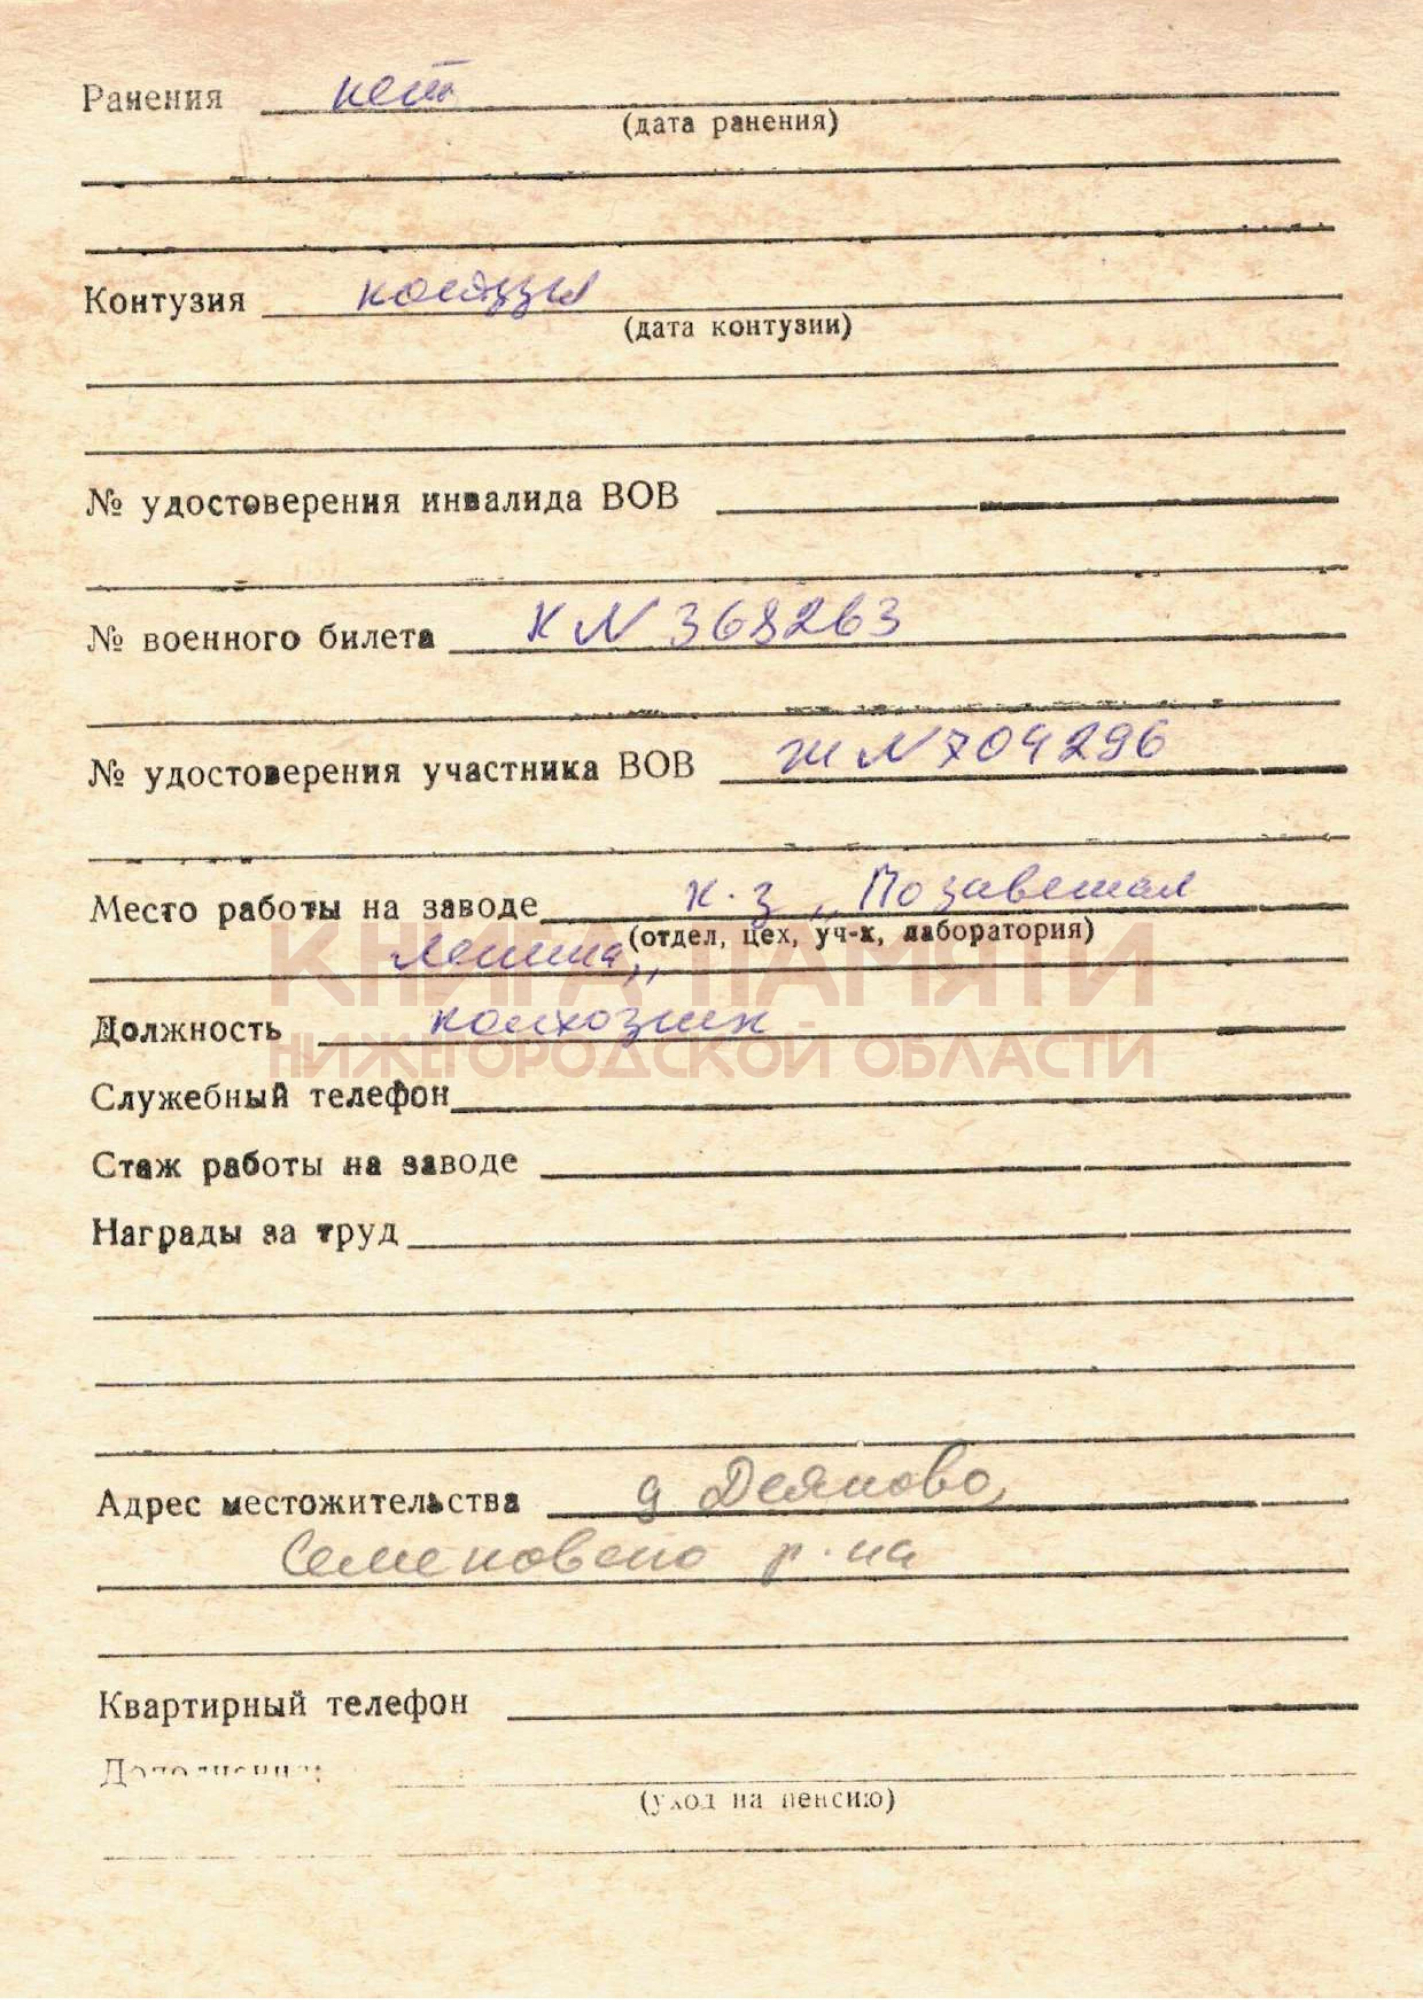 Ранения нет
(дата ранения)
Контузия
(дата контузии)
№ удостоверения инвалида ВОВ
№ военного билета К N 368263
№ удостоверения участника ВОВ Ж N 704296
Место работы на заводе к.з „По заветам
(отдел, цех, уч-к, лаборатория)
Ленина„
КНИГА ПАМЯТИ
Должность колхозник
НИЖЕГОРОДСКОЙ ОБЛАСТИ
Служебный телефон
Стаж работы на заводе
Награды за труд
Адрес местожительства д Деяново,
р-на
Квартирный телефон
(уход на пенсию)